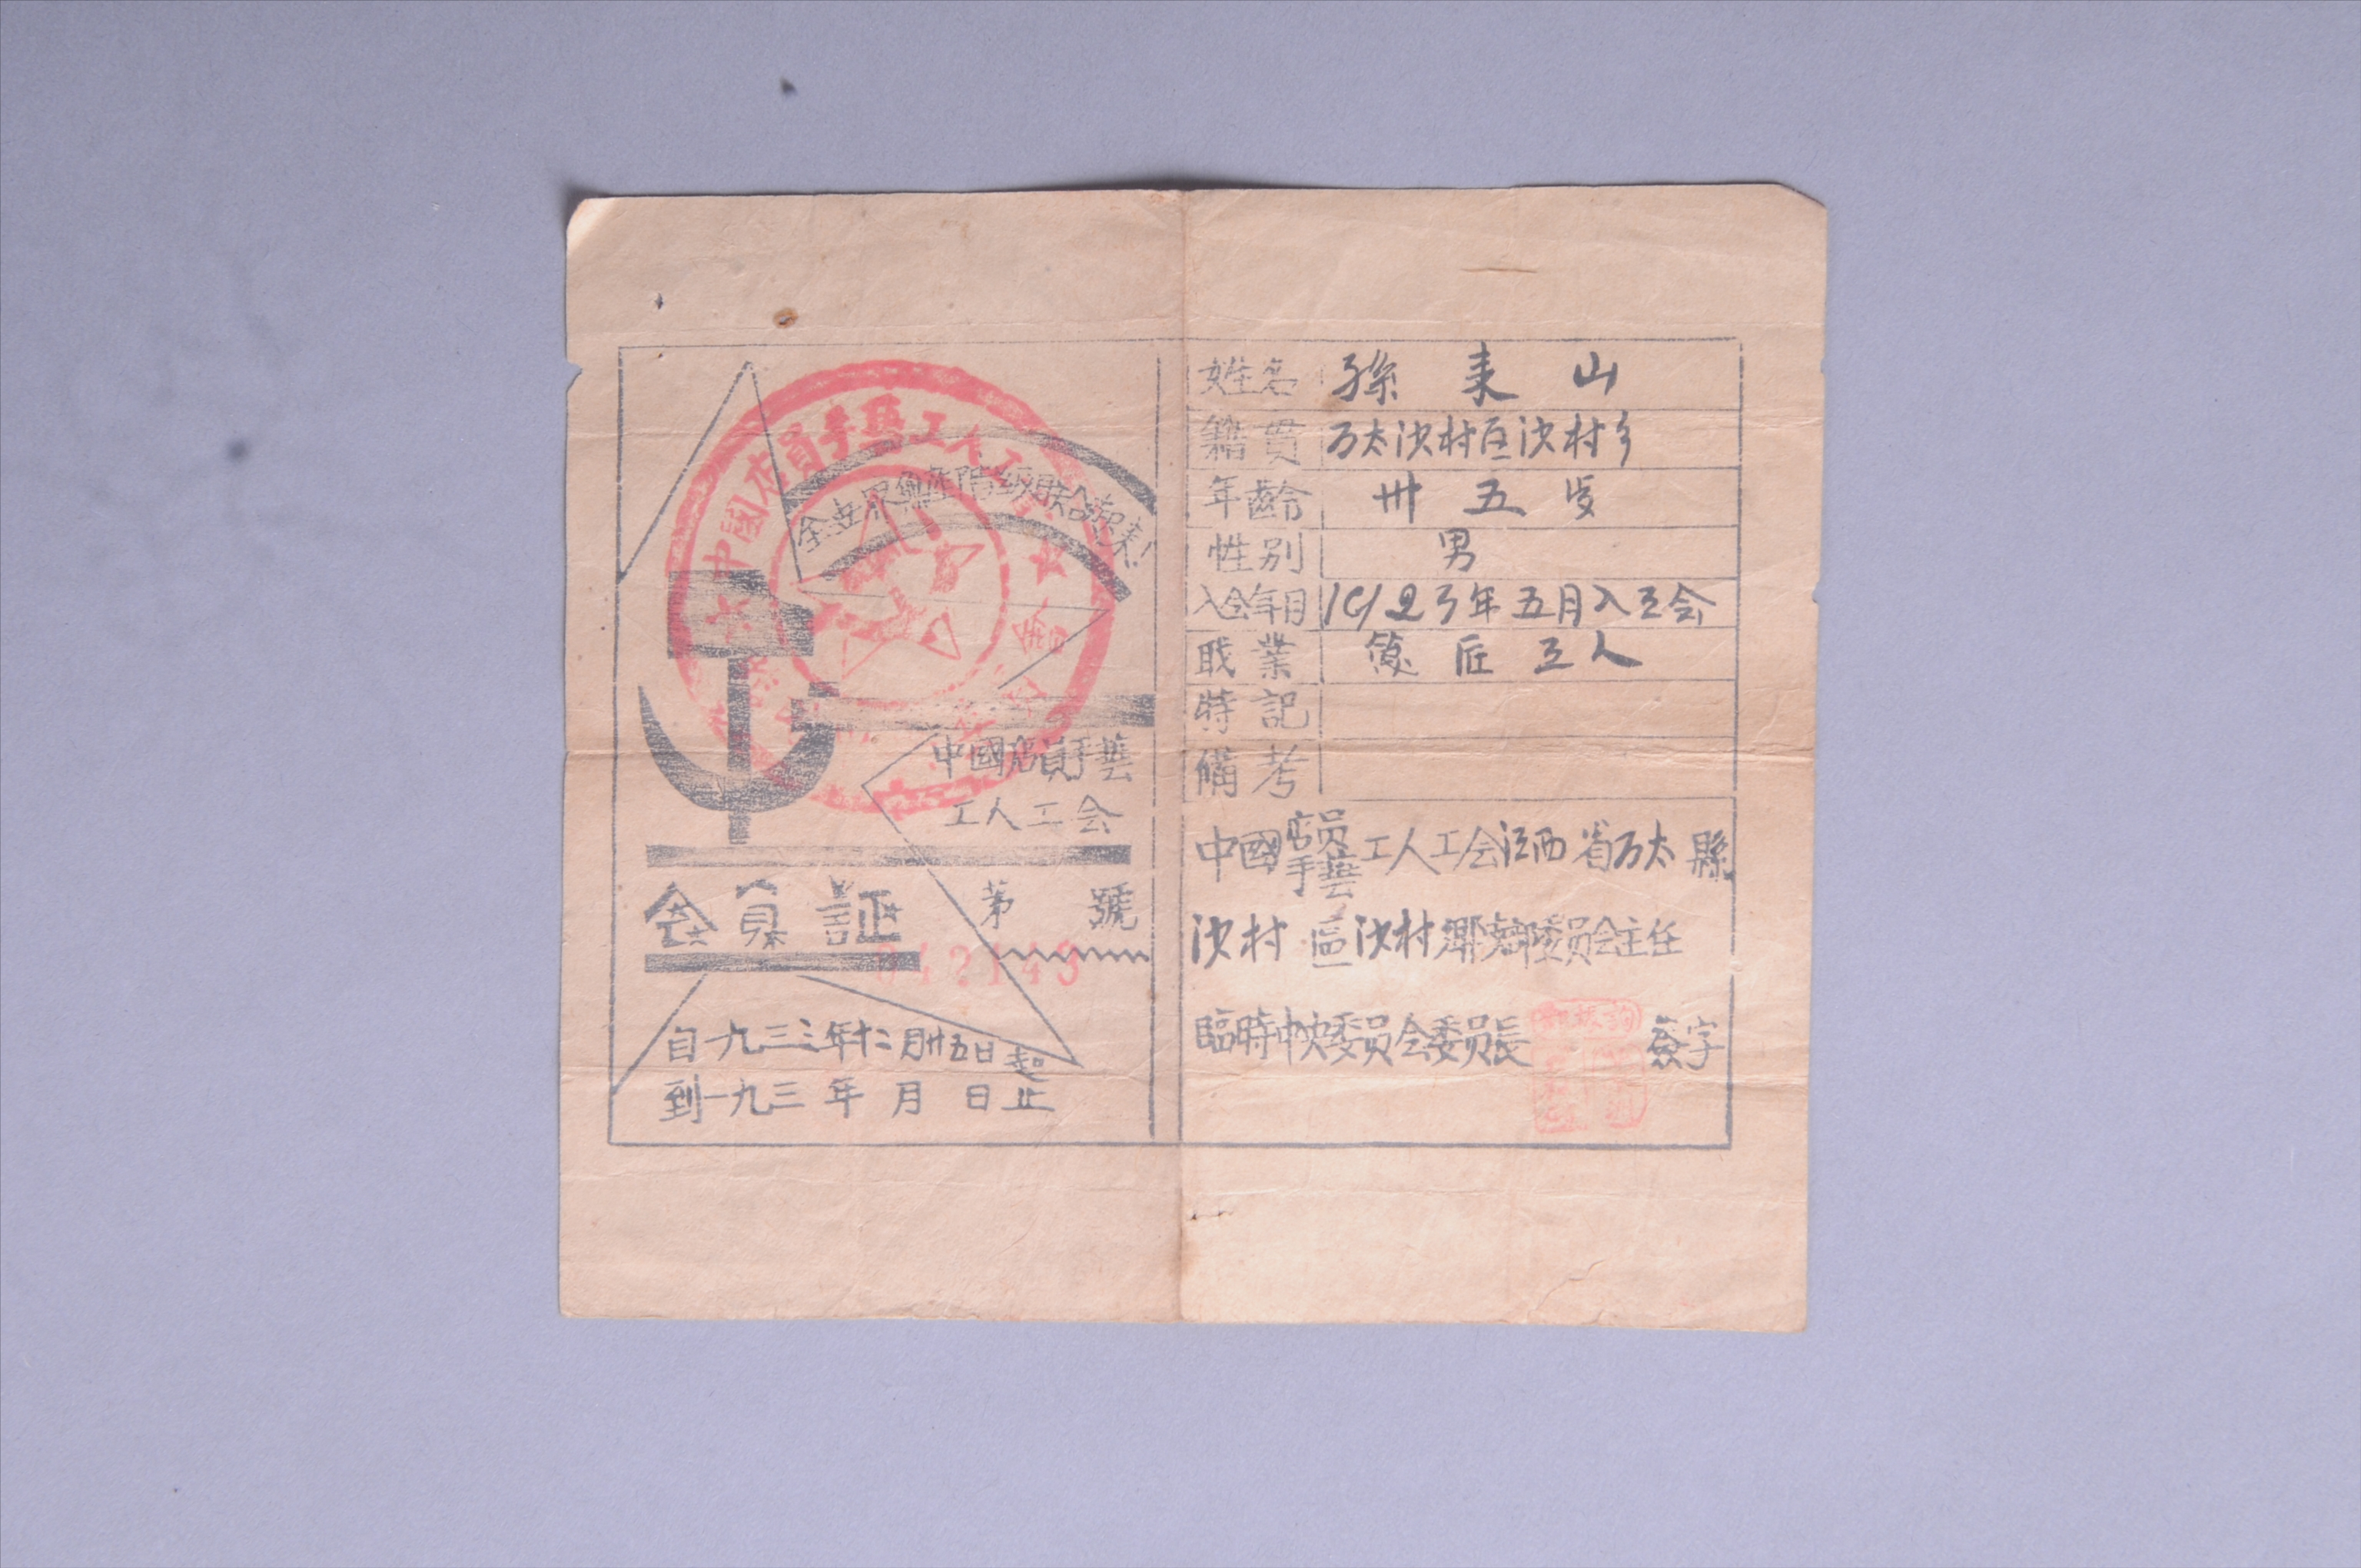 全世界無產階級联合起来!
中國店員手藝
工人工会
会員証 第 號
自一九三三年十二月廿五日起
到一九三 年 月 日止
姓名 孫来山
籍貫 万太沙村区沙村乡
年齡 卅五岁
性别 男
入会年月 1923年五月入工会
職業 篾匠工人
特記
備考
中國店員手藝工人工会江西省万太縣
沙村區沙村鄉支部委员会主任
臨時中央委员会委员長 簽字